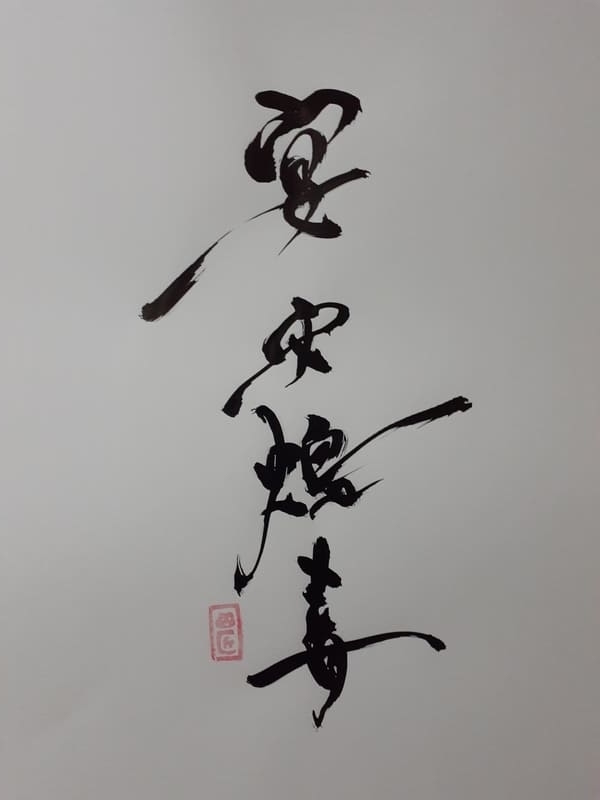 宴安鴆毒